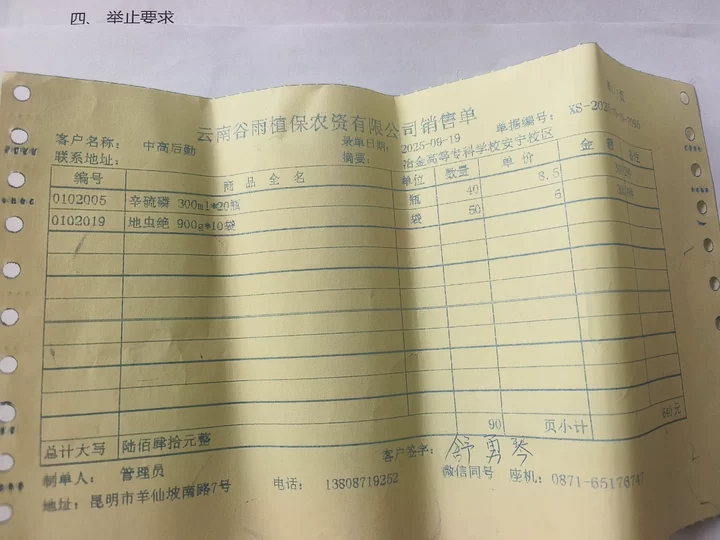 四、举止要求
云南谷雨植保农资有限公司销售单
客户名称： 中高后勤 录单日期： 2025-09-19 单据编号：
联系地址： 摘要： 冶金高等专科学校安宁校区
编号 商品全名 单位 数量 单价 金额
0102005 辛硫磷 300ml*20瓶 瓶 40 8.5
0102019 地虫绝 900g*10袋 袋 50 6
90 页小计 640元
总计大写 陆佰肆拾元整
客户签字： 舒勇琴
制单人： 管理员 电话： 13808719252 微信同号 座机：0871-65176747
地址：昆明市羊仙坡南路7号